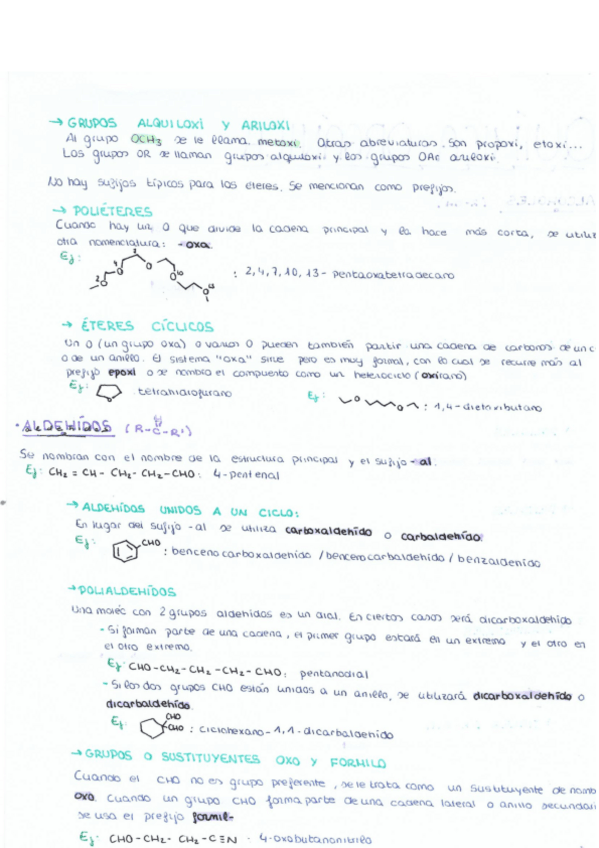 → GRUPOS ALQUILOXI Y ARILOXI
Al grupo OCH3 se le llama metoxi. Otras abreviaturas son propoxi, etoxi...
Los grupos OR se llaman grupos alquiloxi y los grupos OAr ariloxi.
No hay sufijos típicos para los éteres. Se mencionan como prefijos.
→ POLIÉTERES
Cuando hay un O que divide la cadena principal y la hace más corta, se utiliz
otra nomenclatura: -oxa.
Ej: 2 4 7 O O O O 10 O 13 : 2,4,7,10,13-pentaoxatetradecano
→ ÉTERES CÍCLICOS
Un O (un grupo oxa) o varios O pueden también partir una cadena de carbonos de un c
o de un anillo. El sistema "oxa" sirve pero es muy formal, con lo cual se recurre más al
prefijo epoxi o se nombra el compuesto como un heterociclo (oxirano)
Ej: O tetrahidrofurano Ej: O O : 1,4-dietoxibutano
· ALDEHÍDOS (R-C-R')
Se nombran con el nombre de la estructura principal y el sufijo -al.
Ej: CH2 = CH - CH2 - CH2 - CHO: 4-pentenal
→ ALDEHÍDOS UNIDOS A UN CICLO:
En lugar del sufijo -al se utiliza carboxaldehído o carbaldehído.
Ej: CHO : bencenocarboxaldehído / bencenocarbaldehído / benzaldehído
→ POLIALDEHÍDOS
Una molec con 2 grupos aldehídos es un dial. En ciertos casos será dicarboxaldehído
- Si forman parte de una cadena, el primer grupo estará en un extremo y el otro en
el otro extremo.
Ej: CHO-CH2-CH2-CH2-CHO: pentanodial
- Si los dos grupos CHO están unidos a un anillo, se utilizará dicarboxaldehído o
dicarbaldehído.
Ej: CHO CHO : ciclohexano-1,1-dicarbaldehído
→ GRUPOS O SUSTITUYENTES OXO Y FORMILO
Cuando el CHO no es grupo preferente, se le trata como un sustituyente de nomb
oxo. Cuando un grupo CHO forma parte de una cadena lateral o anillo secundari
se usa el prefijo formil-
Ej: CHO-CH2-CH2-C≡N - 4-oxobutanonitrilo